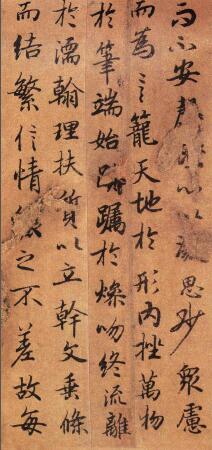 而不安心以思妙眾慮
而為言籠天地於形內挫萬物
於筆端始躑躅於燥吻終流離
於濡翰理扶質以立幹文垂條
而結繁信情之不差故每